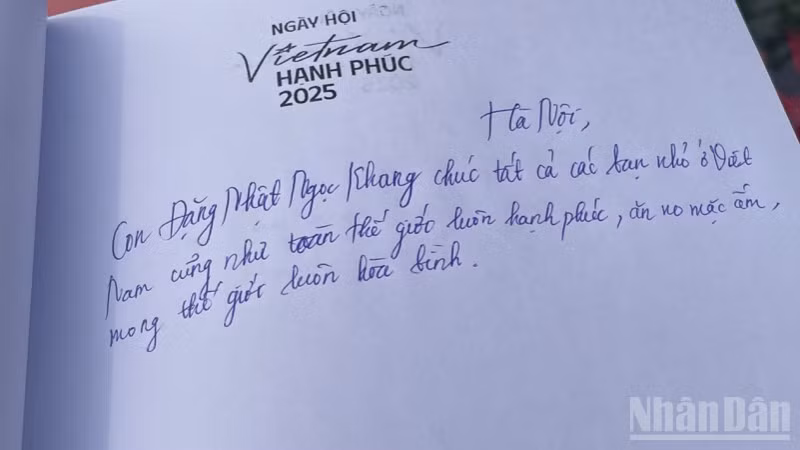 NGÀY HỘI
Vietnam
HẠNH PHÚC
2025
Hà Nội,
Con Đặng Nhật Ngọc Khang chúc tất cả các bạn nhỏ ở Việt
Nam cũng như toàn thế giới luôn hạnh phúc, ăn no mặc ấm,
mong thế giới luôn hòa bình.
NhânDân